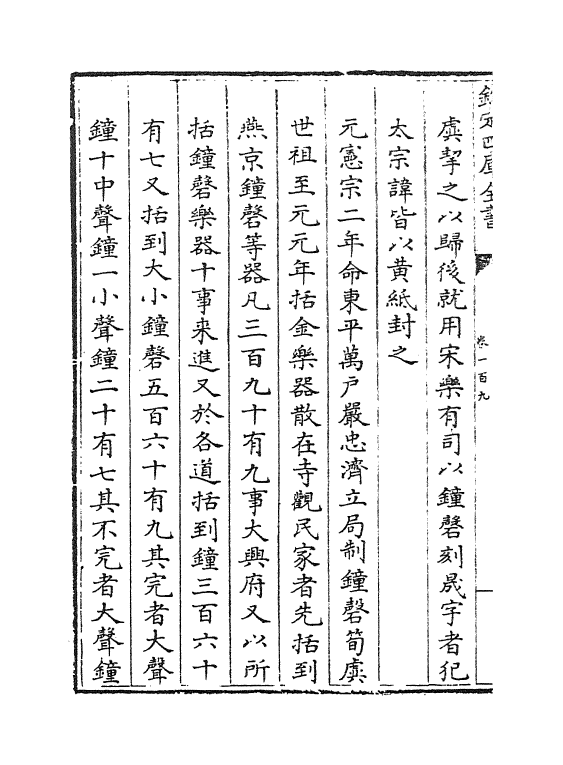 欽定四庫全書
卷一百九
虡挈之以歸後就用宋樂有司以鐘磬刻晟字者犯
太宗諱皆以黄紙封之
元憲宗二年命東平萬户嚴忠濟立局制鐘磬筍虡
世祖至元元年括金樂器散在寺觀民家者先括到
燕京鐘磬等器凡三百九十有九事大興府又以所
括鐘磬樂器十事来進又於各道括到鐘三百六十
有七又括到大小鐘磬五百六十有九其完者大聲
鐘十中聲鐘一小聲鐘二十有七其不完者大聲鐘